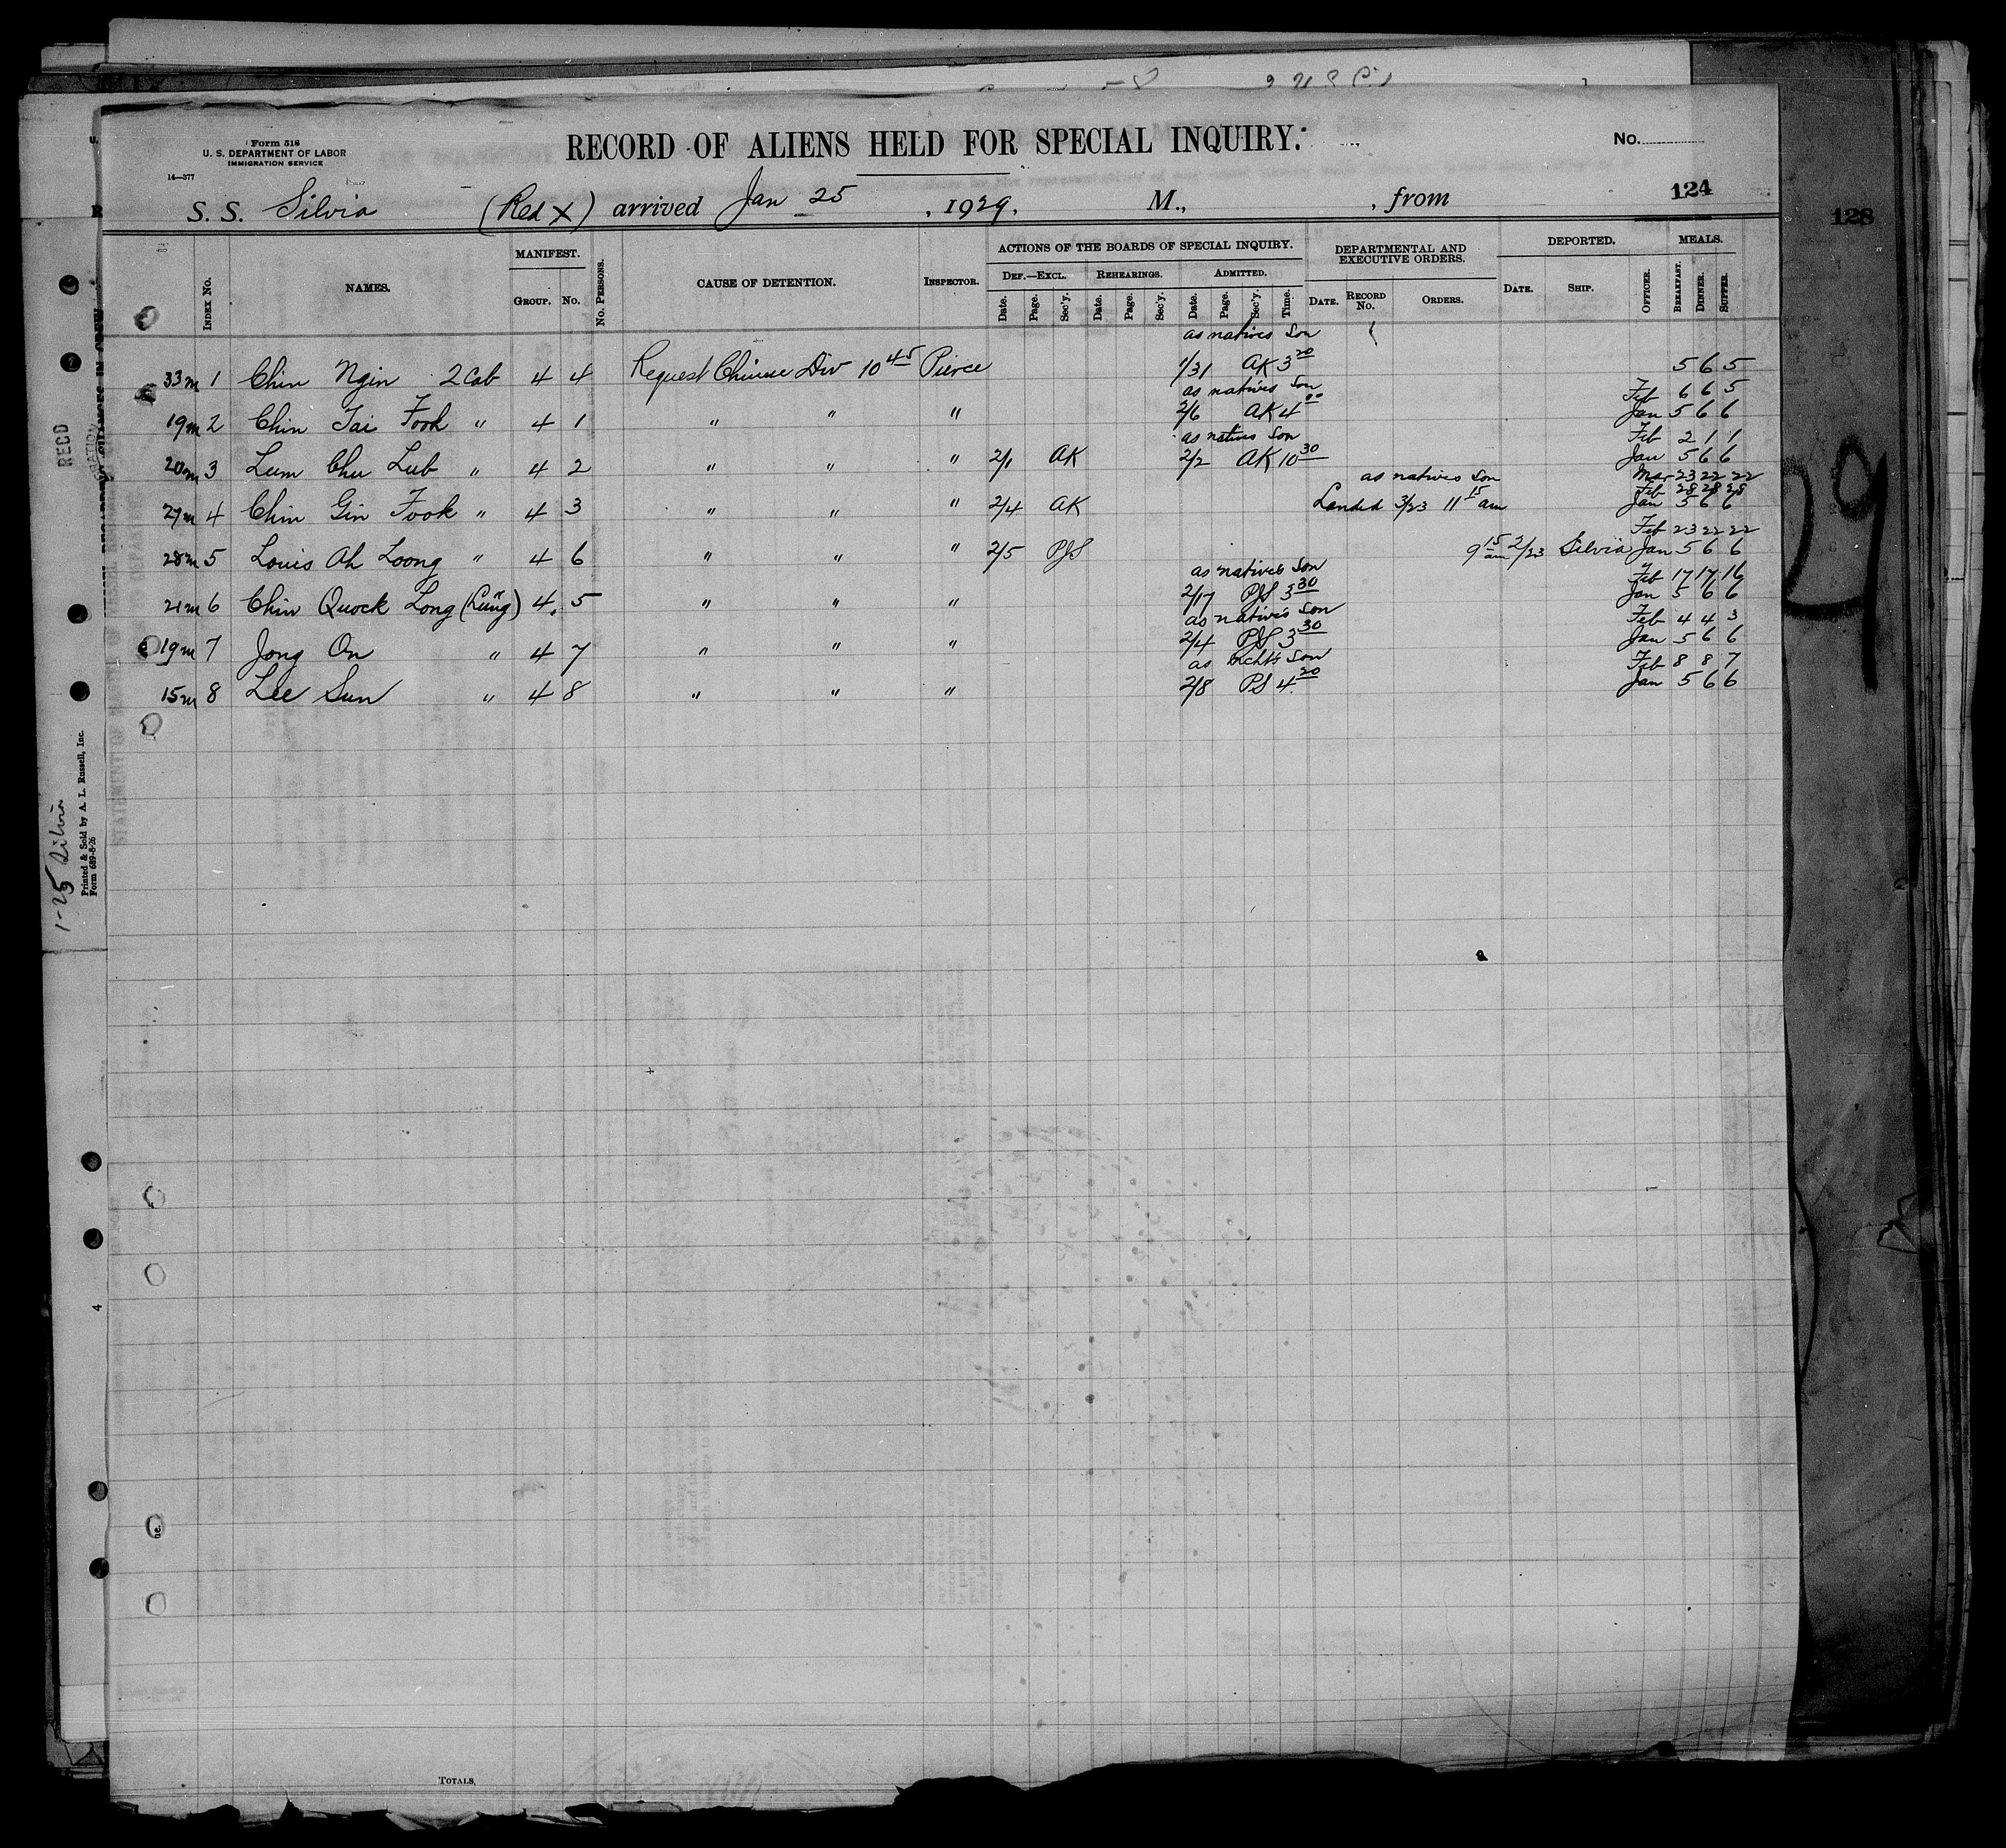 Form 518
U. S. DEPARTMENT OF LABOR
IMMIGRATION SERVICE
14—377
RECORD OF ALIENS HELD FOR SPECIAL INQUIRY.
No.
124
128
S. S. Silvia (Red X) arrived Jan 25, 1929, M., , from
INDEX NO. NAMES. MANIFEST. GROUP. NO. NO. PERSONS. CAUSE OF DETENTION. INSPECTOR.
ACTIONS OF THE BOARDS OF SPECIAL INQUIRY.
DEF.—EXCL. REHEARINGS. ADMITTED.
Date. Page. Sec'y. Date. Page. Sec'y. Date. Page. Sec'y. Time.
DEPARTMENTAL AND EXECUTIVE ORDERS.
DATE. RECORD NO. ORDERS.
DEPORTED.
DATE. SHIP. OFFICER.
MEALS.
BREAKFAST. DINNER. SUPPER.
as natives Son
33m 1 Chin Ngin 2 Cab 4 4 Request Chinese Div 10 45 Pierce 1/31 AK 3 20 5 6 5
as natives Son Feb 6 6 5
19m 2 Chin Tai Fooh " 4 1 " " " 2/6 AK 4 00 Jan 5 6 6
as natives Son Feb 2 1 1
20m 3 Lum Chu Lub " 4 2 " " " 2/1 AK 2/2 AK 10 30 Jan 5 6 6
as natives Son Mar 23 22 22
Feb 28 28 28
27m 4 Chin Gin Fook " 4 3 " " " 2/4 AK Landed 3/23 11 15 am Jan 5 6 6
Feb 23 22 22
28m 5 Louis Ah Loong " 4 6 " " " 2/5 PJS 9 15 am 2/23 Silvia Jan 5 6 6
as natives Son Feb 17 17 16
21m 6 Chin Quock Long (Lung) 4 5 " " " 2/17 PJS 3 30 Jan 5 6 6
as natives Son Feb 4 4 3
19m 7 Jong On " 4 7 " " " 2/4 PJS 3 30 Jan 5 6 6
as mcht's Son Feb 8 8 7
15m 8 Lee Sun " 4 8 " " " 2/8 PS 4 20 Jan 5 6 6
TOTALS,
RECD
Printed & Sold by A. L. Russell, Inc.
Form 689-8-26
1-25 Silvia
4
29